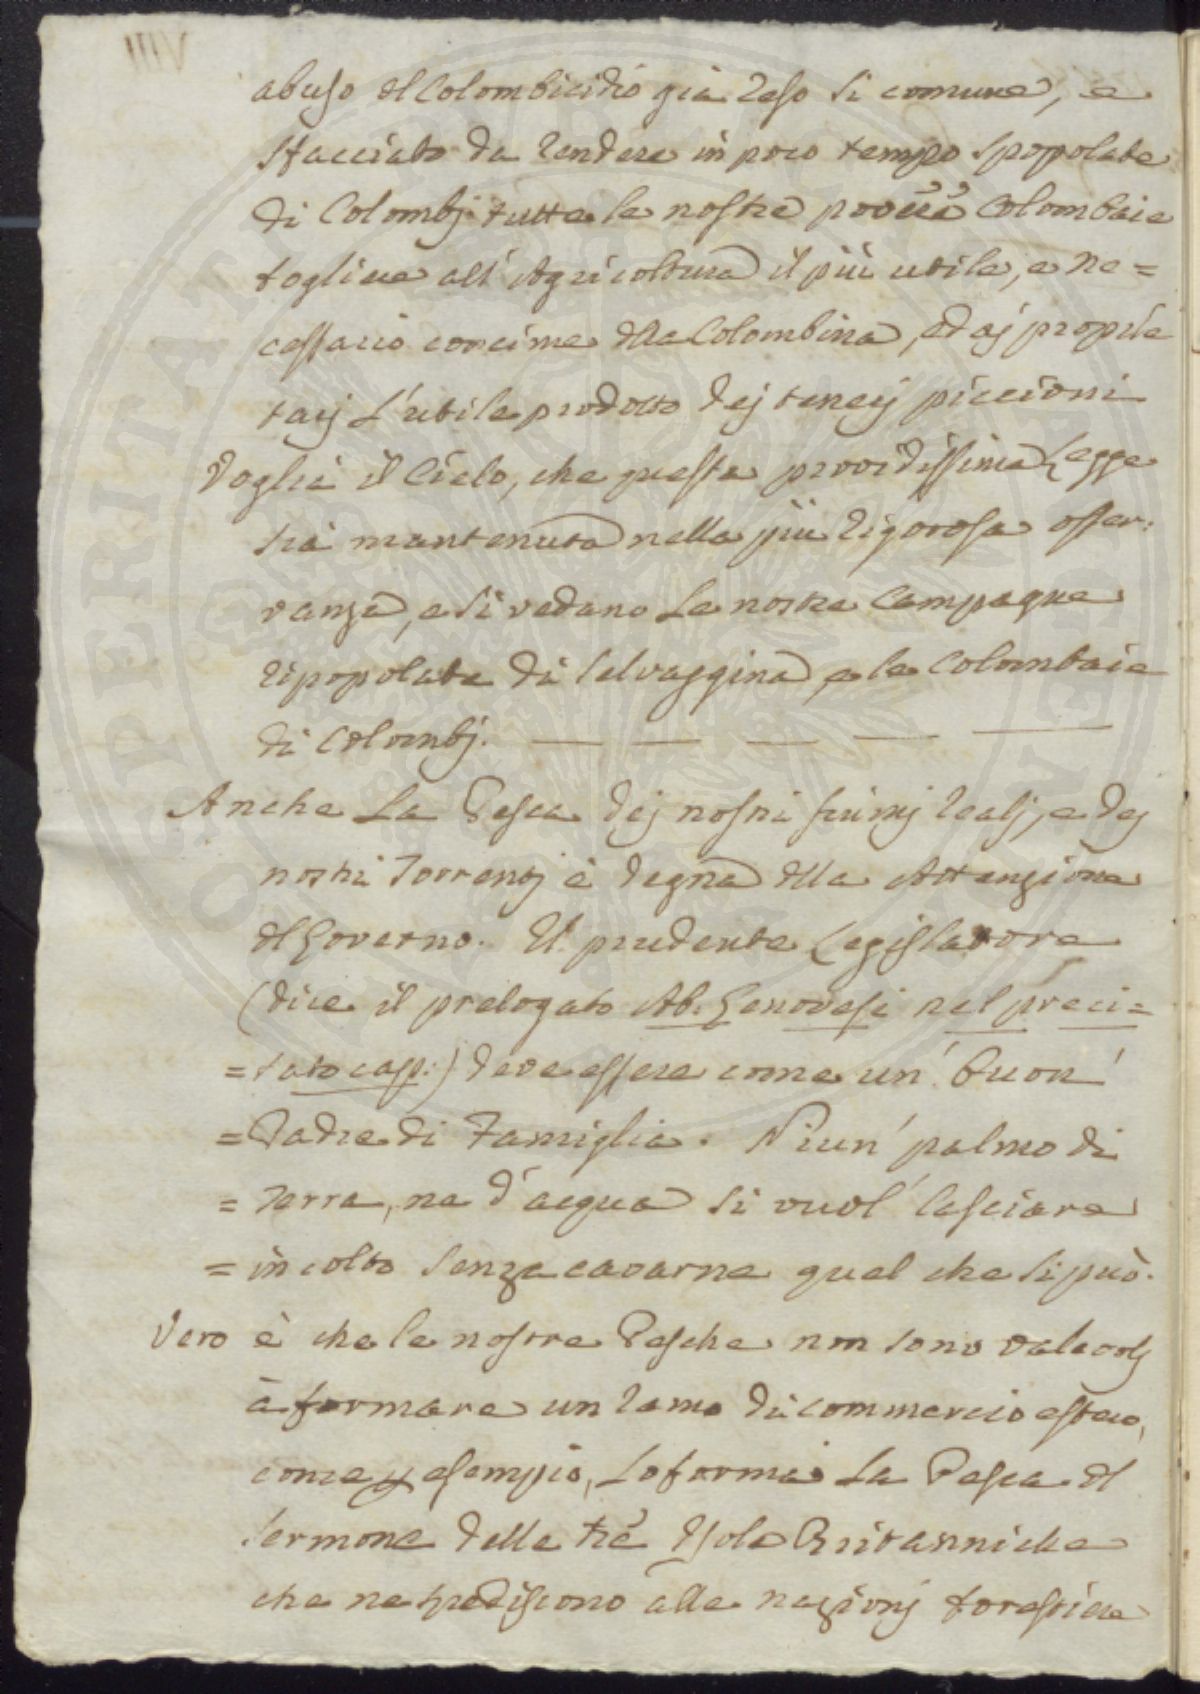 abuso del Colombicidio già reso si comune, e
sfacciato da rendere in poco tempo spopolate
di Colombj tutte le nostre Colombaie
togliere all' Agricoltura il più utile, e ne=
cessario concime della Colombina, ed aj proprie
tarj l'utile prodotto dej tenerj piccioni
Voglia il Cielo, che questa providissima Legge
sia mantenuta nella più rigorosa osser:
vanza, e si vedano le nostre Campagne
ripopolate di selvaggina, e le Colombaie
di Colombj. — — — — —
Anche La Pesca dej nostri fiumj realj, e dej
nostri Torrentj è degna della Attenzione
del Governo. Il prudente Legislatore
(dice il prelogato Ab: Genovesi nel preci=
=tato cap:) deve essere come un' buon'
=Padre di Famiglia. Niun' palmo di
=Terra, ne d'acqua si vuol' lasciare
=incolto senza cavarne quel che si può.
Vero è che le nostre Pesche non sono valevolj
à formare un ramo di commercio estero,
come p esempio, lo forma La Pesca del
sermone delle trè Isole Britanniche
che ne spediscono alle nazionj forestiere